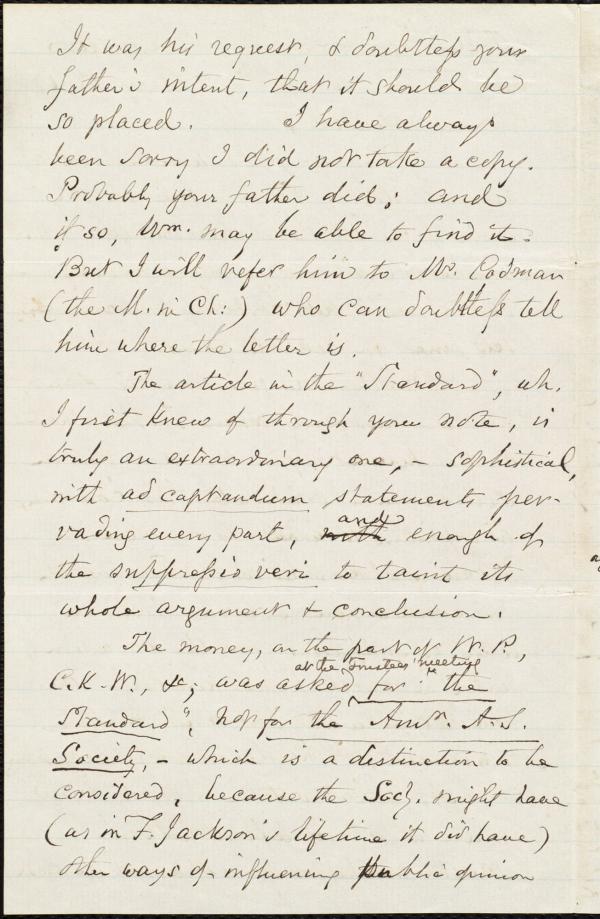 It was his request, & doubtless your
father's intent, that it should be
so placed. I have always
been sorry I did not take a copy.
Probably your father did; and
if so, Wm. may be able to find it.
But I will refer him to Mr. Codman
(the M. in Ch:) who can doubtless tell
him where the letter is.
The article in the "Standard", wh.
I first knew of through your note, is
truly an extraordinary one, – sophistical,
with ad captandum statements per-
vading every part, with and enough of
the suppressio veri to taint its
whole argument & conclusion.
The money, on the part of W. P.,
at the Trustees' meeting
C. K. W., &c; was asked for "the
Standard", not for the Amn. A. S.
Society, – which is a distinction to be
considered, because the Socy. might have
(as in F. Jackson's lifetime it did have)
other ways of influencing public opinion